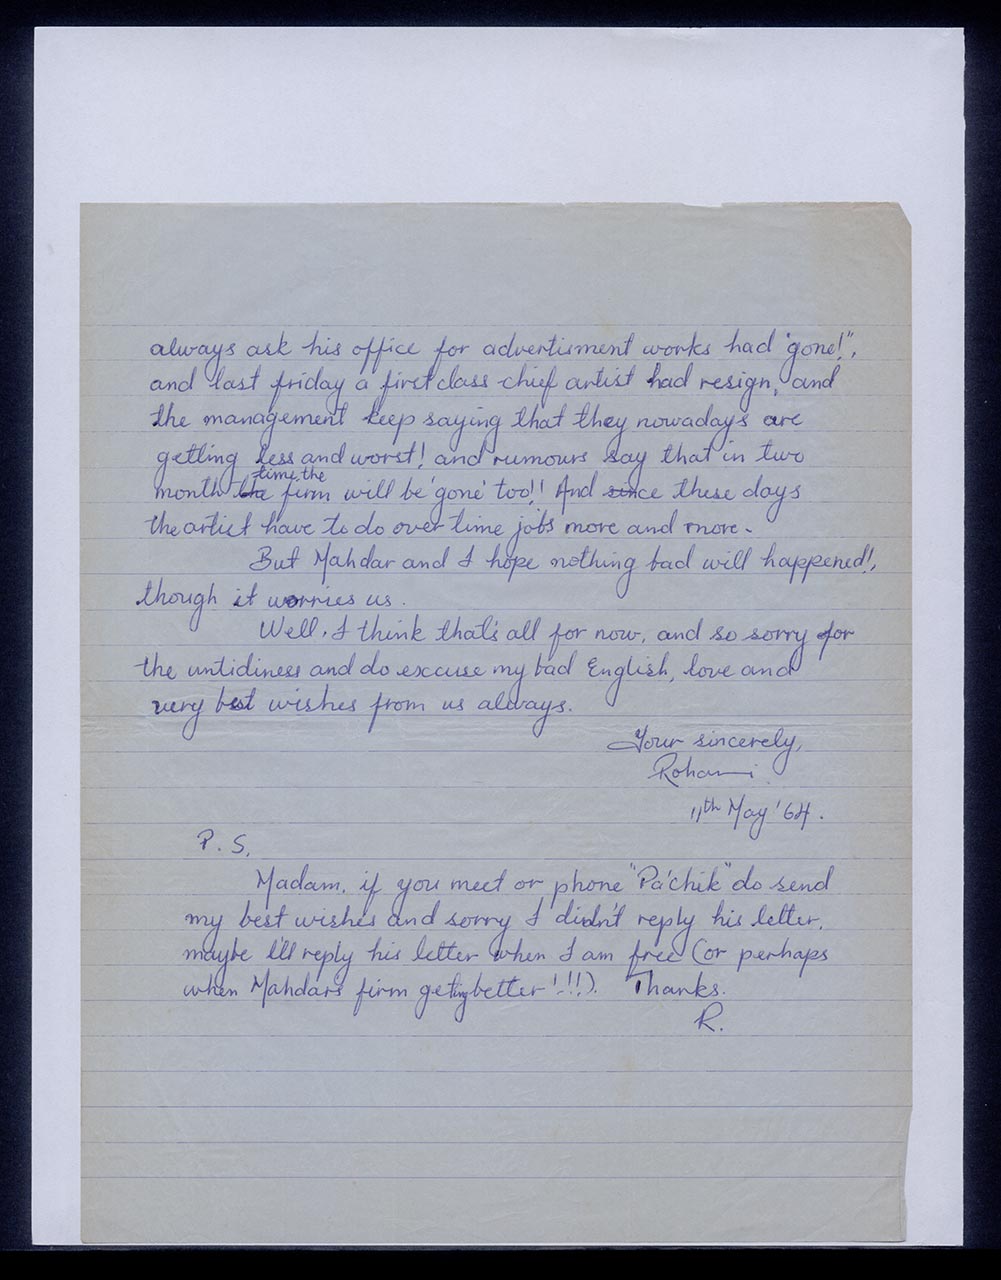 always ask his office for advertisment works had "gone!",
and last friday a first class chief artist had resign, and
the management keep saying that they nowadays are
getting less and worst! and rumours say that in two
month time the firm will be 'gone' too!! And since these days
the artist have to do over time jobs more and more.
But Mahdar and I hope nothing bad will happened!,
though it worries us.
Well, I think that's all for now, and so sorry for
the untidiness and do excuse my bad English, love and
very best wishes from us always.
Your sincerely,
Rohani
11th May '64.
P.S,
Madam, if you meet or phone "Pa'chik" do send
my best wishes and sorry I didn't reply his letter,
maybe I'll reply his letter when I am free (or perhaps
when Mahdar's firm geting better!!!). Thanks.
R.